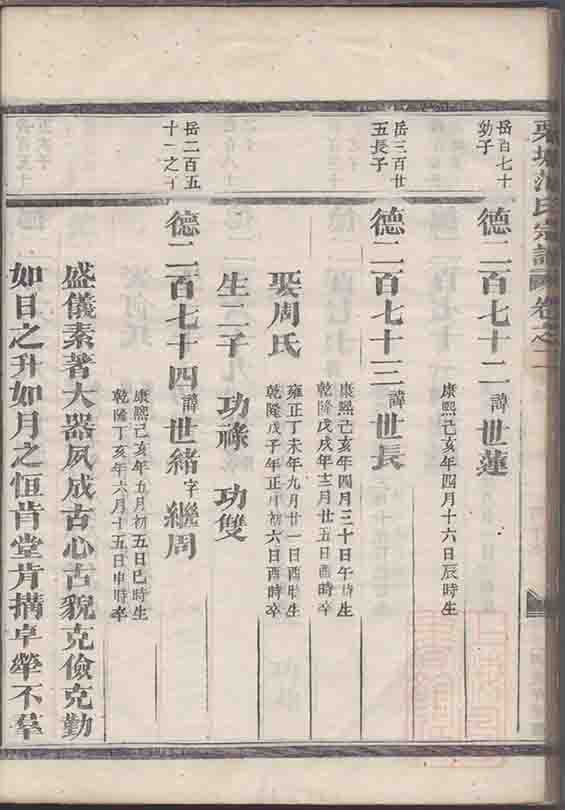 范氏宗譜 卷之二
岳百七十
幼子
德二百七十二 諱 世蓮
康熙己亥年四月十六日辰時生
岳三百廿
五長子
德二百七十三 諱 世長
康熙己亥年四月三十日午時生
乾隆戊戌年三月廿五日酉時卒
娶周氏
雍正丁未年九月廿一日酉時生
乾隆戊子年正月初六日酉時卒
生二子 功祿 功雙
岳二百五
十一之子
德二百七十四 諱 世緒 字 繼周
康熙己亥年五月初五日巳時生
乾隆丁亥年六月十五日申時卒
盛儀素著大器夙成古心古貌克儉克勤
如日之升如月之恒肯堂肯搆卓犖不羣